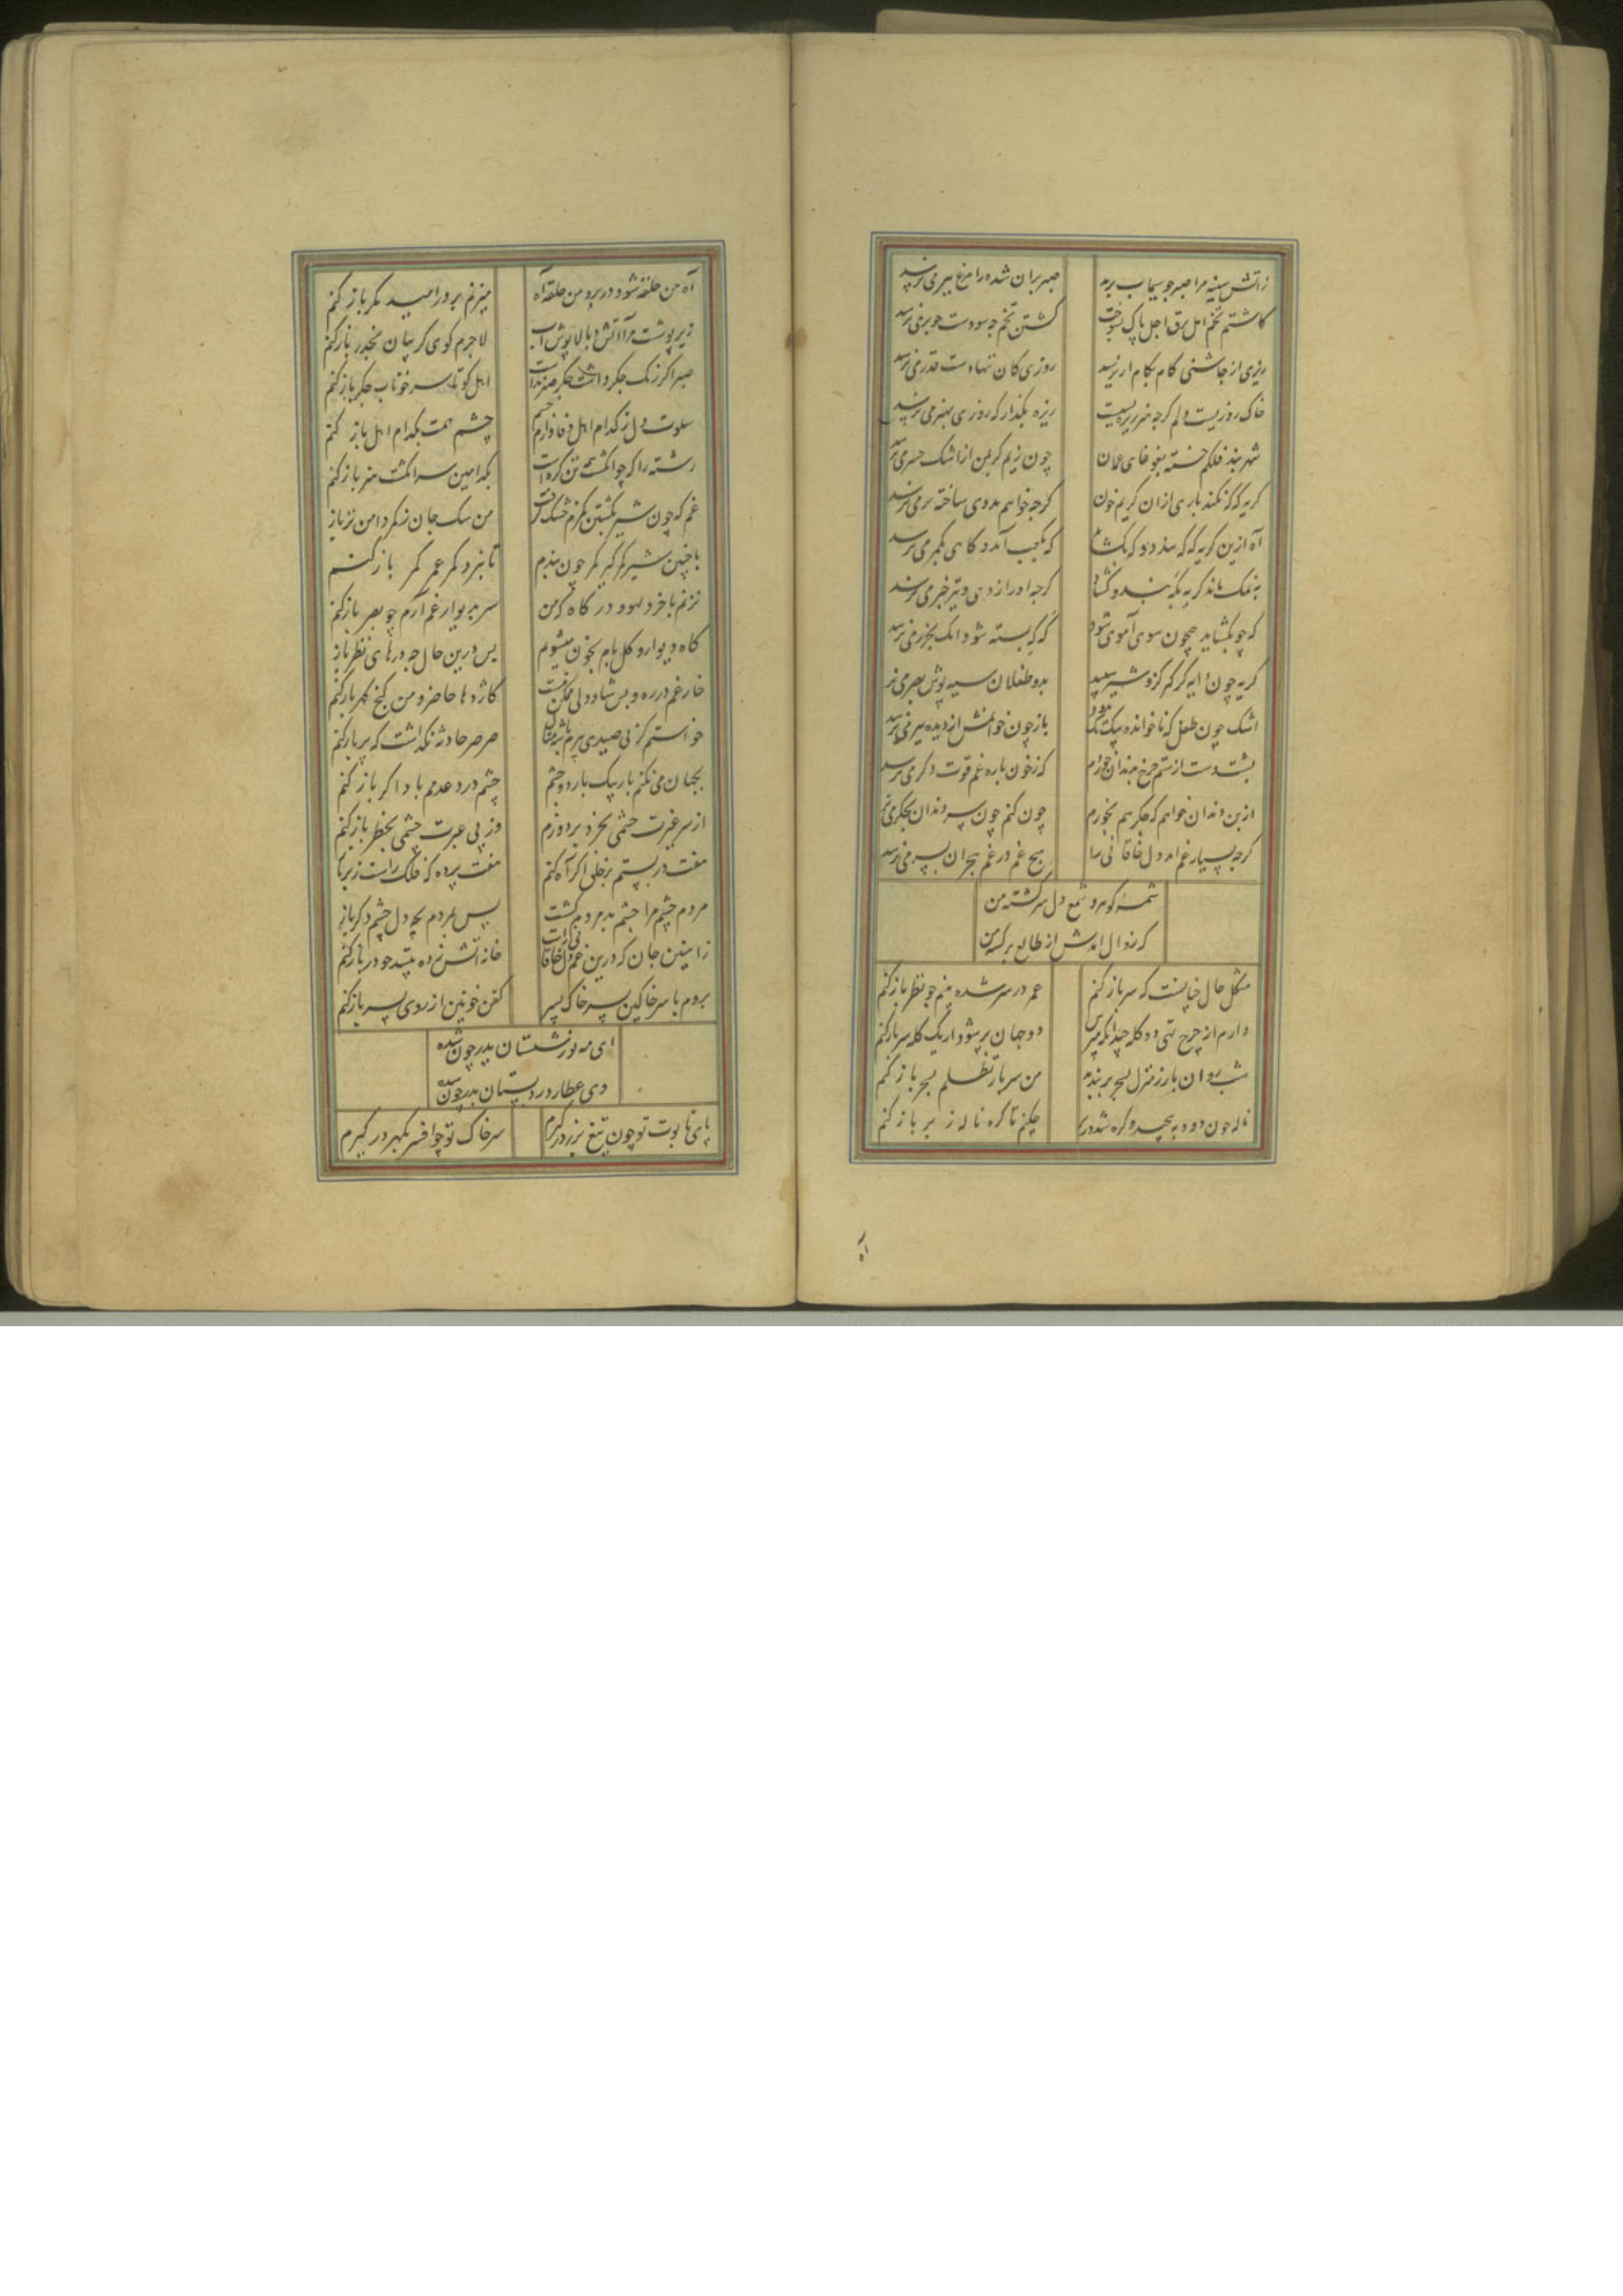 زاتش سینه مرا صبر جو سیماب برید
صبر بران شده را مرغ ببر می نرسد
کاشتم تخم امل برق اجل پاک بسوخت
کشتن تخم جه سودست جو بر می نرسد
ریزی از جاشنی کام بکام ار نرسد
روزی کان ننهادست قدر می نرسد
خاک روزیست دلم کرجه هنر ریزه بسیست
ریزه بکذار که روزی بهنر می نرسد
شهربند فلکم خسته غوغای غمان
چون زیم کز من از اشک حشر می نرسد
کریه که که نکند یاری ازان کریم خون
کرجه خواهم مددی ساخته بر می نرسد
آه ازین کریه که که بندد و که بکشاید
که بکعب آمد و کاهی بکمر می نرسد
به نمک ماند کریه بکه بند و کشاد
کرجه او را ز دی و تیر خبر می نرسد
که جو بکشاید جیحون سوی آموی شود
که که بسته شود انک بخزر می نرسد
کریه چون دایه کر کز و شیر سپید
بدو طفلان سیه پوش بصر می نرسد
اشک چون طفل که ناخوانده بیک تک بدود
باز چون خوانمش از دیده ببر می نرسد
پشت دست از ستم چرخ بدندان خوردم
که ز خون باره غم قوت دکر می نرسد
از بن دندان خواهم که جکر هم بخورم
چون کنم چون سر دندان بجکر می نرسد
کرجه بسیار غم امد دل خاقانی را
هیچ غم در غم هجران پسر می نرسد
شمه کو مرد و شمع دل سرکشته من
که زوال امدش از طالع برکشته من
مشکل حال جنانست که سر باز کنم
عمر در سر شده بینم جو نظر باز کنم
دارم از چرخ تهی دو کله چندانک مپرس
دو جهان پر شود ار یک کله سر باز کنم
شب روان بار ز منزل بسحر بربندند
من سر بار تظلم بسحر باز کنم
ناله جون دود بپیچد و کره شد در بر
جکنم تا کره ناله ز بر باز کنم
آه
آه من حلقه شود در بر و من حلقه آه
میزنم بر در امید مکر باز کنم
زیر پوشت مرا آتش و بالا پوش آب
لاجرم کوی کریبان بحذر باز کنم
صبر اکر رنک جکر داشت جکر صبر نداشت
اهل کو تا سر خوناب جکر باز کنم
سلوت دل ز کدام اهل وفا دارم چشم
چشم همت بکدام اهل باز کنم
رشته را که چو انکشت همه تن کره است
بکدامین سر انکشت هنر باز کنم
غم که چون شیر بکشتن کمرم خشک کرفت
من سک جان ز کمر دامن تر باز
با چنین شیر کمر کیر کمر چون بندم
تا نبرد کمر عمر کمر باز کنم
نزنم باخرد لهو و در کاه که من
سر بدیوار غم آرم چو بصر باز کنم
کاه دیوار و کل بام بخون میشویم
بس درین حال جه درهای نظر باز
خار غم در ره و پس شاددلی ممکن نیست
کاژدها حاضر و من کنج کهر باز کنم
خواستم کز پی صیدی بپرم
صرصر حادثه نکذاشت که پر باز کنم
بجهان می نکنم باز بیک بار دو چشم
چشم درد عدمم باد اکر باز کنم
از سر غیرت چشمی بخرد بردوزم
وز پی عبرت چشمی بخطر باز کنم
هفت در بستم بر خلق اکر آه کنم
هفت پرده که فلک راست ز بر باز
مردم چشم مرا جشم بد مردم کشت
پس بمردم بچه دل چشم دکر باز
نازنین جان که درین غم دل خاقانی راست
خانه آتش زده بیند جو در باز کنم
بروم با سر خاکین بسر خاک پسر
کفن خونین از روی پسر باز کنم
ای مه نو ز شبستان پدر چون شده
وی عطارد ز دبستان پدر چون شده
پای تابوت تو چون تیغ بزر در کیرم
سر خاک تو چو افسر بکهر در کیرم